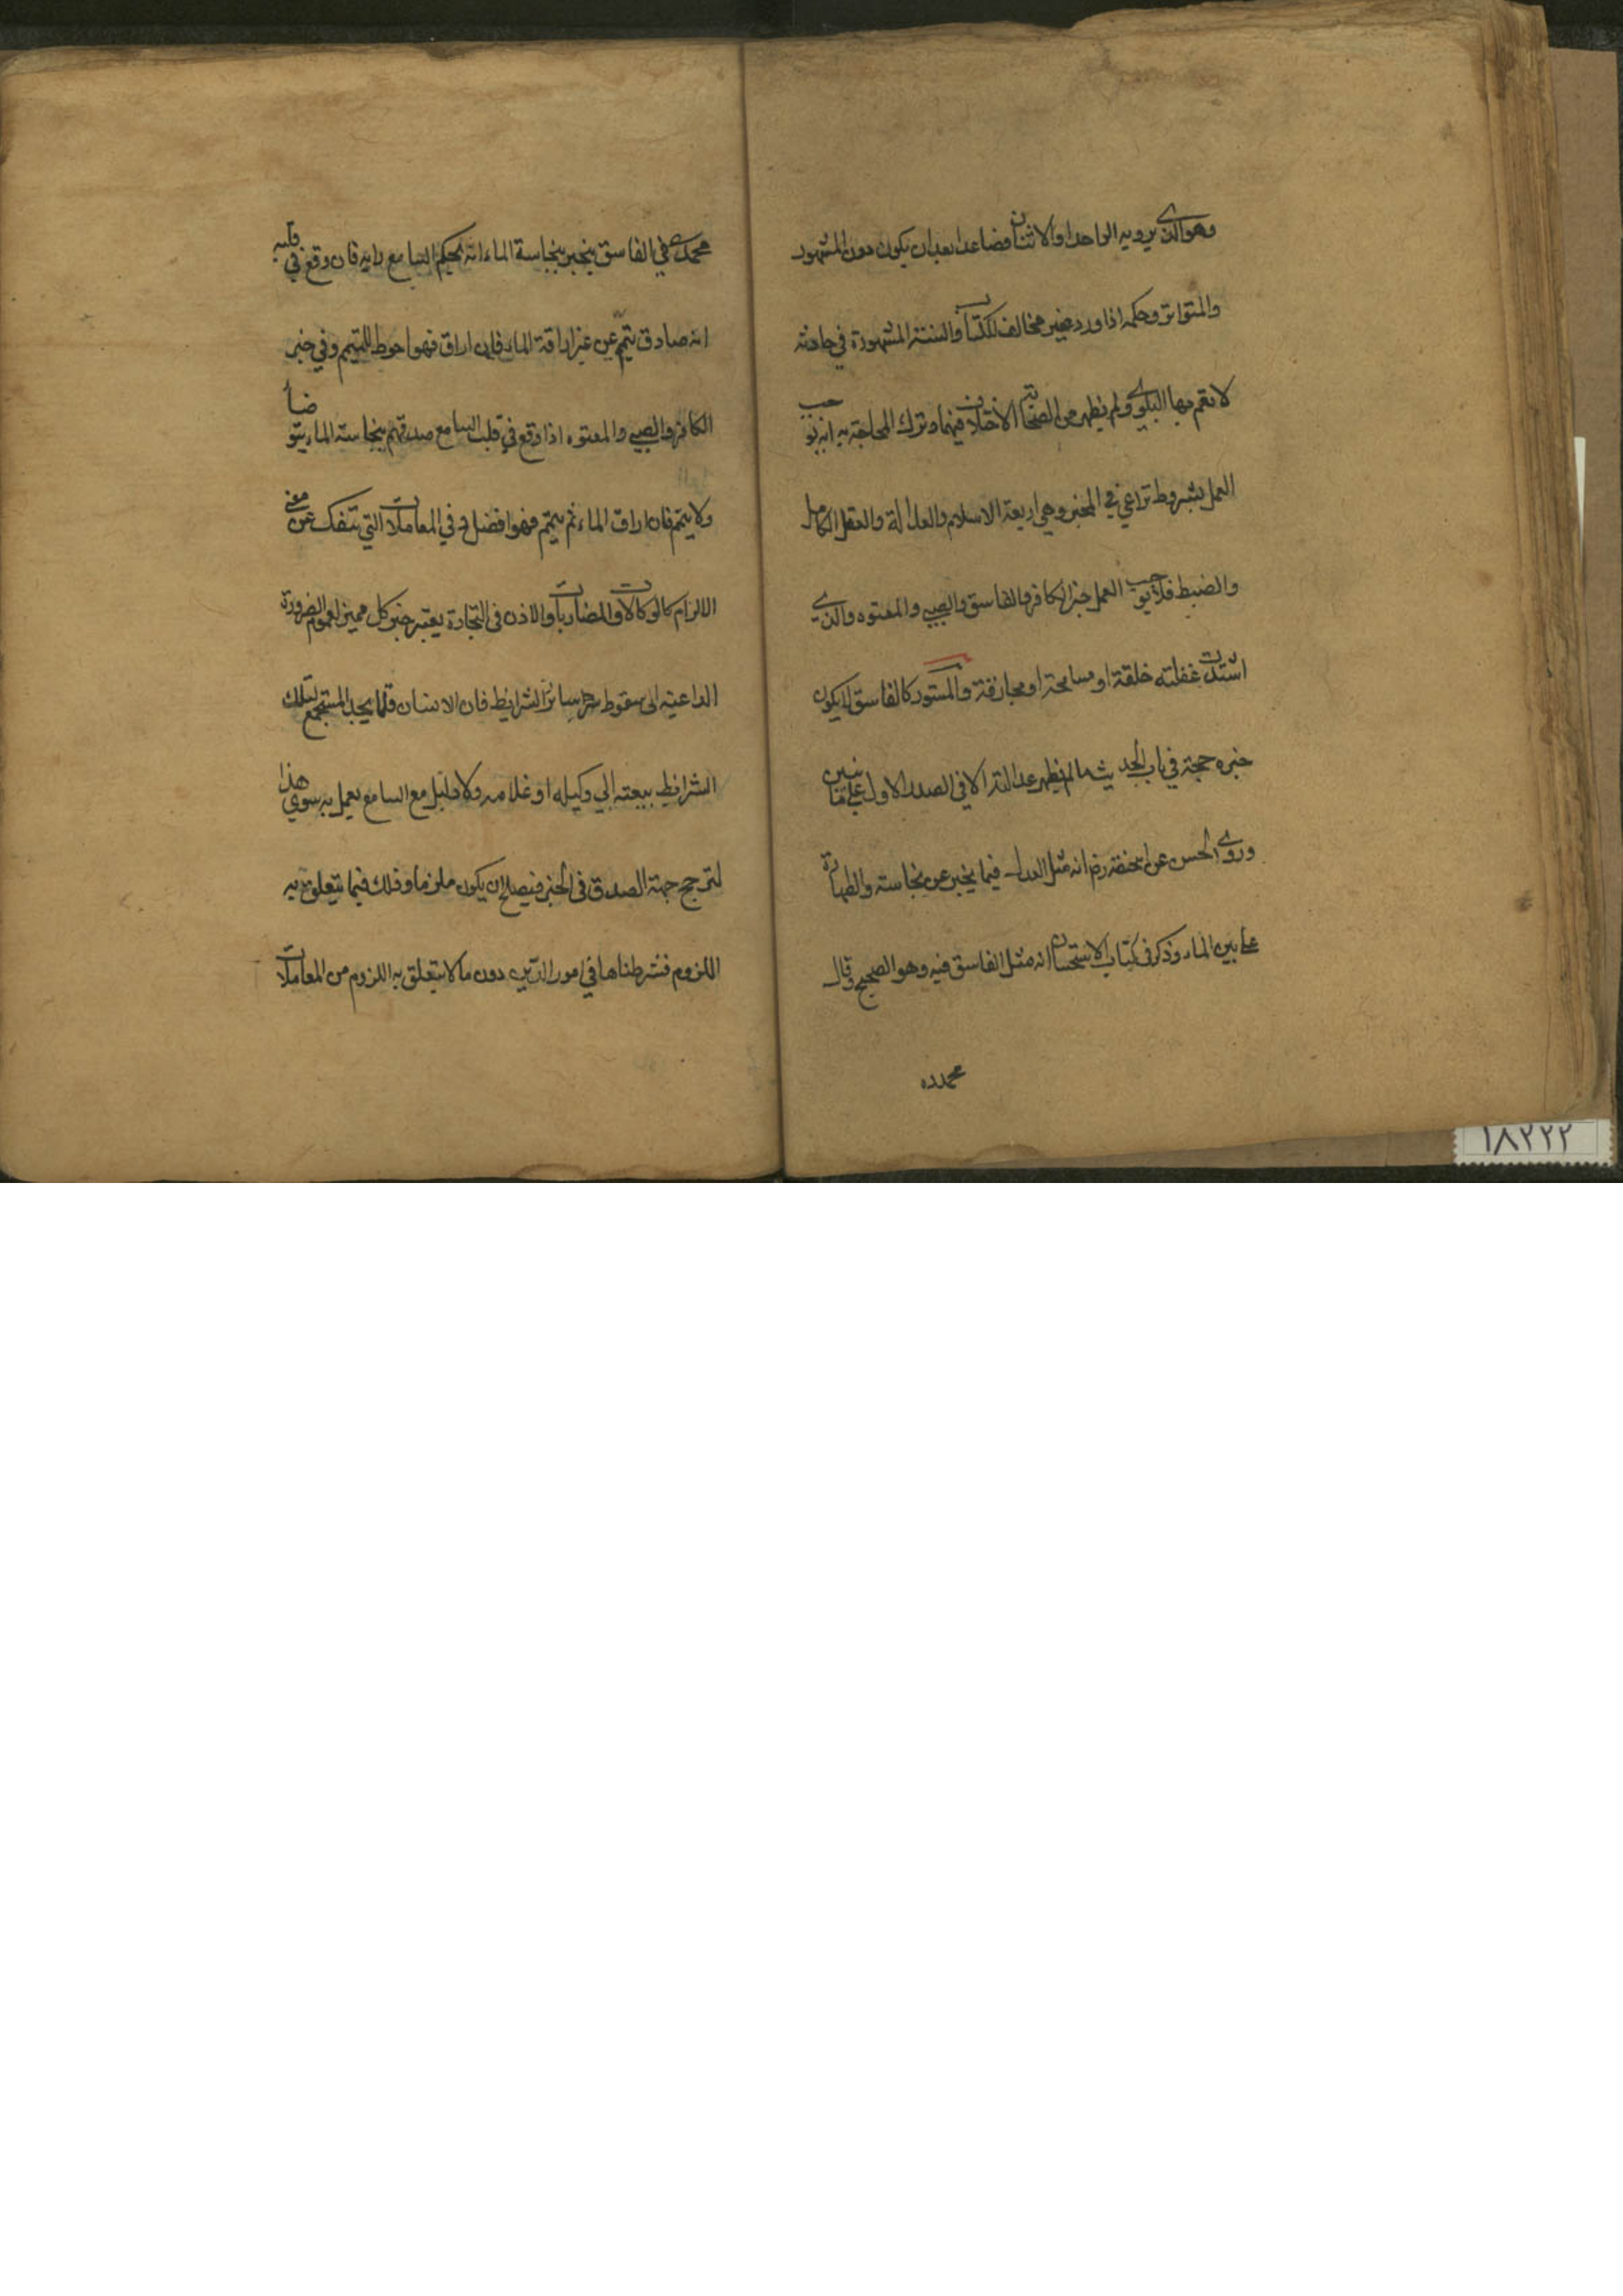 وهو الذي يرويه الواحد او الاثنان فصاعدا بعد ان يكون دون المشهور
والمتواتر وحكمه اذا ورد غير مخالف للكتاب والسنة المشهورة في حادثة
لا تعم بها البلوي ولم يظهر من الصحابة الاختلاف فيها وترك المحاجة به انه يوجب
العمل بشروط تراعي في المخبر وهي اربعة الاسلام والعدالة والعقل الكامل
والضبط فلا يوجب العمل خبر الكافر والفاسق والصبي والمعتوه والذي
اشتدت غفلته خلقة او مسامحة او مجازفة والمستور كالفاسق لا يكون
خبره حجة في باب الحديث ما لم يظهر عدالته الا في الصدر الاول علي ما نبين
وروي الحسن عن ابي حنيفة رض انه مثل العدل فيما يخبر عن نجاسة والطهارة
الماء وذكر في كتاب الاستحسان انه مثل الفاسق فيه وهو الصحيح وقال
محمد ره
محمد في الفاسق يخبر بنجاسة الماء انه يحكم السامع رايه فان وقع في قلبه
انه صادق يتيمم عن غير اراقة الماء فان اراق فهو احوط للتيمم وفي خبر
الكافر والصبي والمعتوه اذا وقع في قلب السامع صدقهم بنجاسة الماء يتوضأ
ولا يتيمم فان اراق الماء ثم يتيمم فهو افضل وفي المعاملات التي تنفك عن معني
الالزام كالوكالات والمضاربات والاذن في التجارة يعتبر خبر كل مميز لعموم الضرورة
الداعية الى سقوط سائر الشرايط فان الانسان قلما يجد المستجمع لتلك
الشرايط يبعثه الي وكيله او غلامه ولا دليل مع السامع يعمل به سوي هذا
لترجح جهة الصدق في الخبر فيصلح ان يكون ملزما وذلك فيما يتعلق به
اللزوم فشرطناها في امور الدين دون ما لا يتعلق به اللزوم من المعاملات
١٨٢٢٢